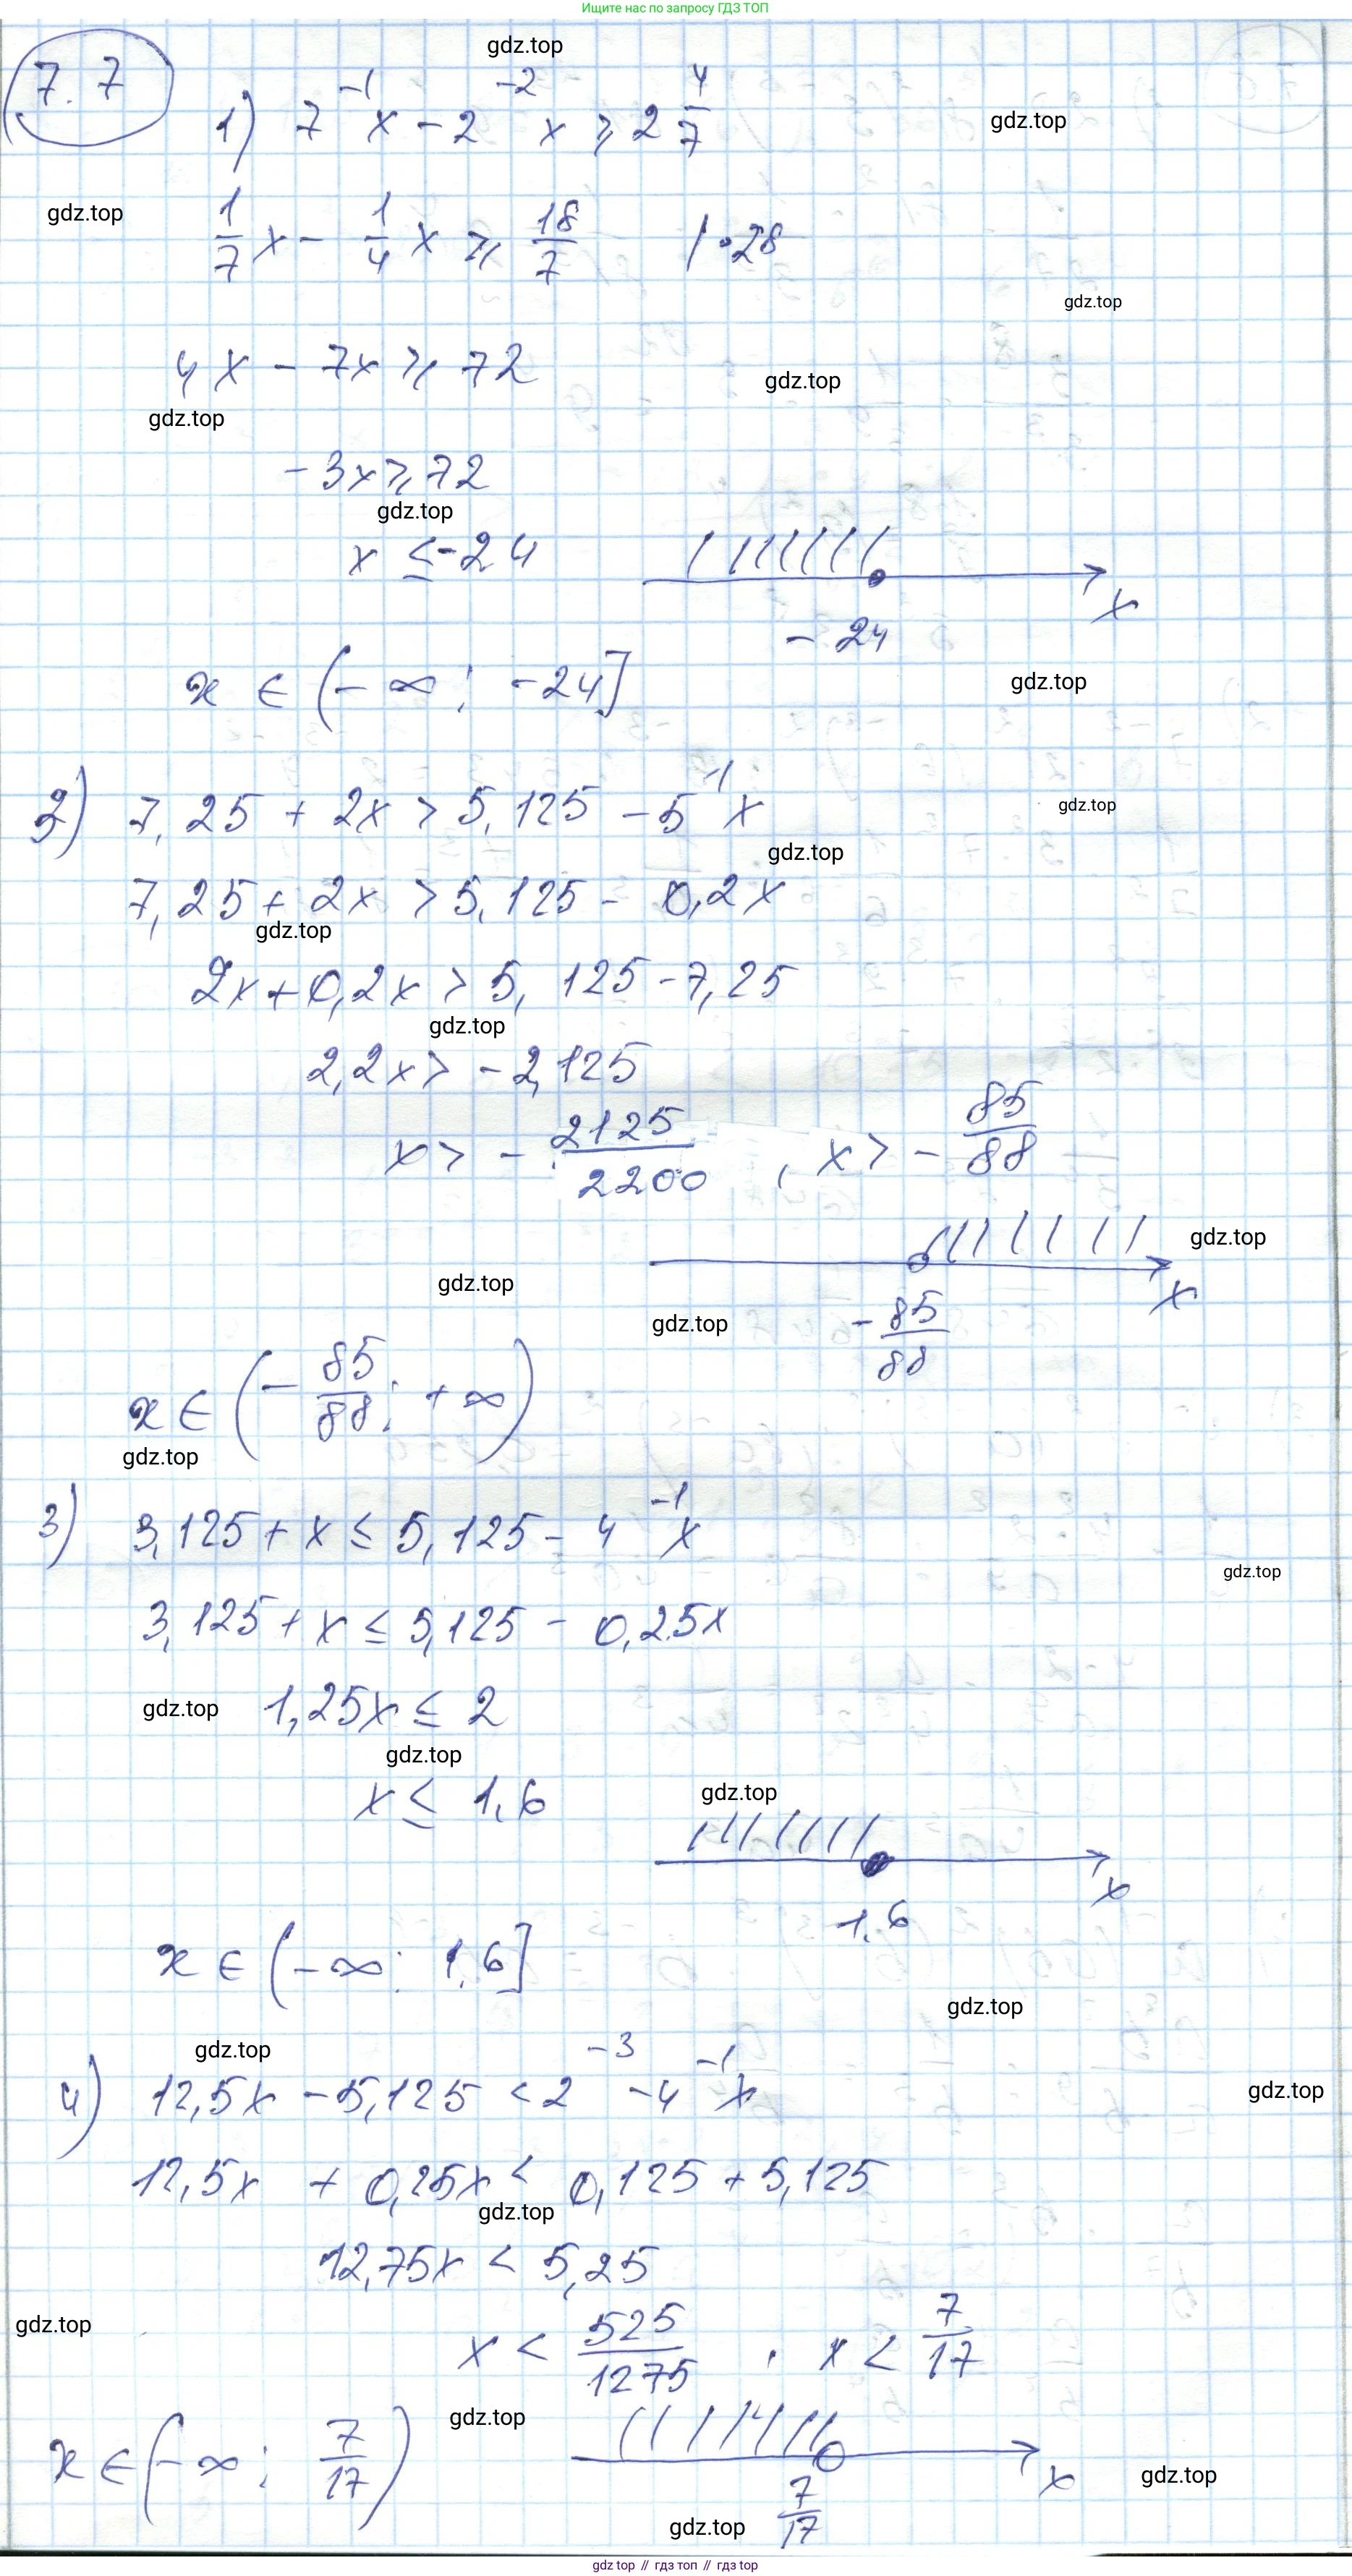 Ищите нас по запросу ГДЗ ТОП
gdz.top
7.7
1) 7⁻¹x − 2⁻²x ⩾ 2 4/7
gdz.top
gdz.top
1/7 x − 1/4 x ⩾ 18/7 | · 28
gdz.top
4x − 7x ⩾ 72
gdz.top
gdz.top
−3x ⩾ 72
gdz.top
x ≤ −24
x
−24
x ∈ (−∞; −24]
gdz.top
2) 7,25 + 2x > 5,125 − 5⁻¹x
gdz.top
gdz.top
7,25 + 2x > 5,125 − 0,2x
gdz.top
2x + 0,2x > 5,125 − 7,25
gdz.top
2,2x > −2,125
x > − 2125/2200 , x > − 85/88
gdz.top
gdz.top
x
gdz.top
− 85/88
x ∈ (− 85/88; +∞)
gdz.top
3) 3,125 + x ≤ 5,125 − 4⁻¹x
gdz.top
3,125 + x ≤ 5,125 − 0,25x
gdz.top
1,25x ≤ 2
gdz.top
x ≤ 1,6
gdz.top
x
1,6
x ∈ (−∞; 1,6]
gdz.top
gdz.top
4) 12,5x − 5,125 < 2⁻³ − 4⁻¹x
gdz.top
12,5x + 0,25x < 0,125 + 5,125
gdz.top
12,75x < 5,25
gdz.top
x < 525/1275 , x < 7/17
gdz.top
x ∈ (−∞; 7/17)
x
gdz.top
7/17
gdz.top
gdz top // гдз топ // гдз top